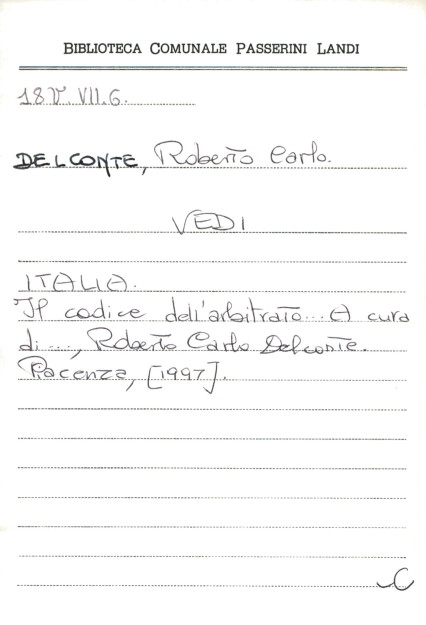 BIBLIOTECA COMUNALE PASSERINI LANDI
18 V. VII. 6.
DELCONTE, Roberto Carlo.
VEDI
ITALIA.
Il codice dell'arbitrato... A cura
di ..., Roberto Carlo Delconte.
Piacenza, [1997].